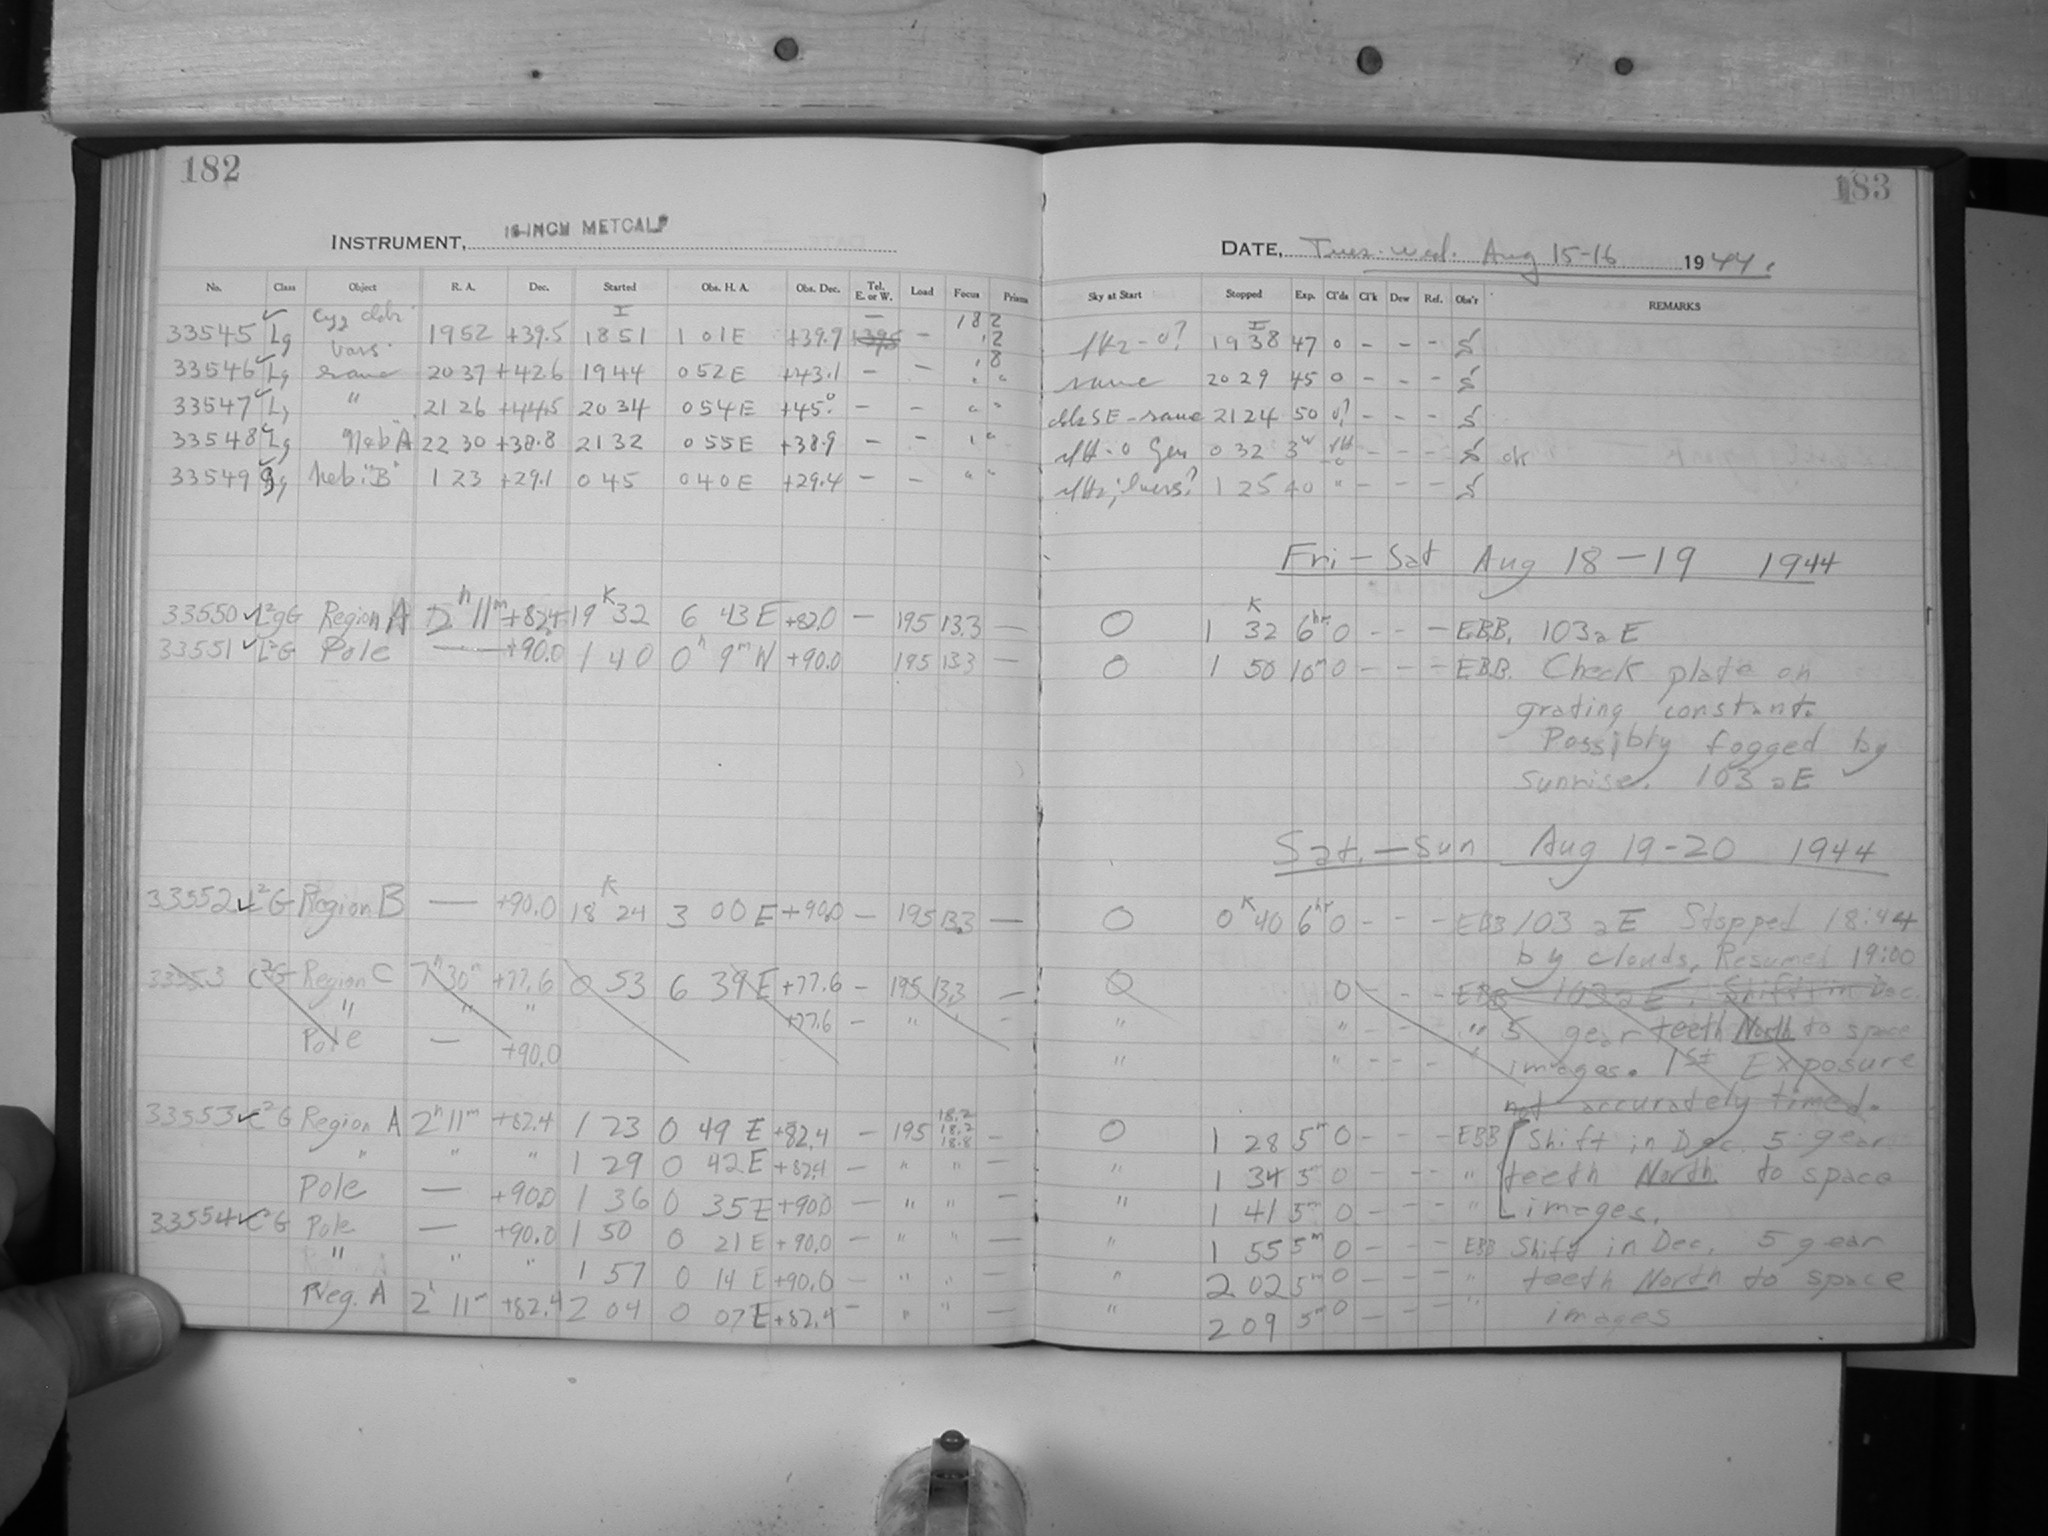 182
183
INSTRUMENT, 16-INCH METCALF
DATE, Tues. Wed. Aug 15-16 1944.
No. Class Object R. A. Dec. Started Obs. H. A. Obs. Dec. Tel. E. or W. Load Focus Prism Sky at Start Stopped Exp. Cl'ds Cl'k Dew Ref. Obs'r REMARKS
33545 Lg Cyg vars. 19 52 +39.5 18 51 1 01 E +39.9 - 19 38 47 0 - - -
33546 Lg same 20 37 +42.6 19 44 0 52 E +43.1 - - same 20 29 45 0 - - -
33547 Lg " 21 26 +44.5 20 34 0 54 E +45.0 - - " " SE - same 21 24 50 0? - - -
33548 Lg Neb "A" 22 30 +38.8 21 32 0 55 E +38.9 - - 0 32 3h - - - ok
33549 Neb. "B" 1 23 +29.1 0 45 0 40 E +29.4 - - " " 1 25 40 " - - -
Fri - Sat Aug 18-19 1944
33550 Region A 2h 11m +82.4 19 K 32 6 43 E +82.0 - 195 13.3 - O 1 K 32 6hr 0 - - - E.B.B. 103aE
33551 L2G Pole - +90.0 1 40 0h 9m W +90.0 195 13.3 - O 1 50 10m 0 - - - E.B.B. Check plate on
grating constant.
Possibly fogged by
sunrise. 103aE
Sat. - Sun Aug 19-20 1944
33552 L2G Region B - +90.0 18 K 24 3 00 E +90.0 - 195 13.3 - O 0 K 40 6hr 0 - - - EBB 103aE Stopped 18:44
by clouds. Resumed 19:00
33553 L2G Region C 7h 30m +77.6 0 53 6 39 E +77.6 - 195 13.3 - O 0 - - - EBB 103aE. Shift in Dec.
" " " +77.6 - " " - " " - - - " 5 gear teeth North to space
Pole - +90.0 " " - - - images. 1st Exposure
not accurately timed.
33553 L2G Region A 2h 11m +82.4 1 23 0 49 E +82.4 - 195 18.2 18.2 18.8 - O 1 28 5m 0 - - - EBB Shift in Dec. 5 gear
" " " 1 29 0 42 E +82.4 - " " - " 1 34 5m 0 - - - " teeth North to space
Pole - +90.0 1 36 0 35 E +90.0 - " " - " 1 41 5m 0 - - - " images.
33554 L2G Pole - +90.0 1 50 0 21 E +90.0 - " " - " 1 55 5m 0 - - - EBB Shift in Dec. 5 gear
" " " 1 57 0 14 E +90.0 - " " - " 2 02 5m 0 - - - " teeth North to space
Reg. A 2h 11m +82.4 2 04 0 07 E +82.4 - " " - " 2 09 5m 0 - - " images